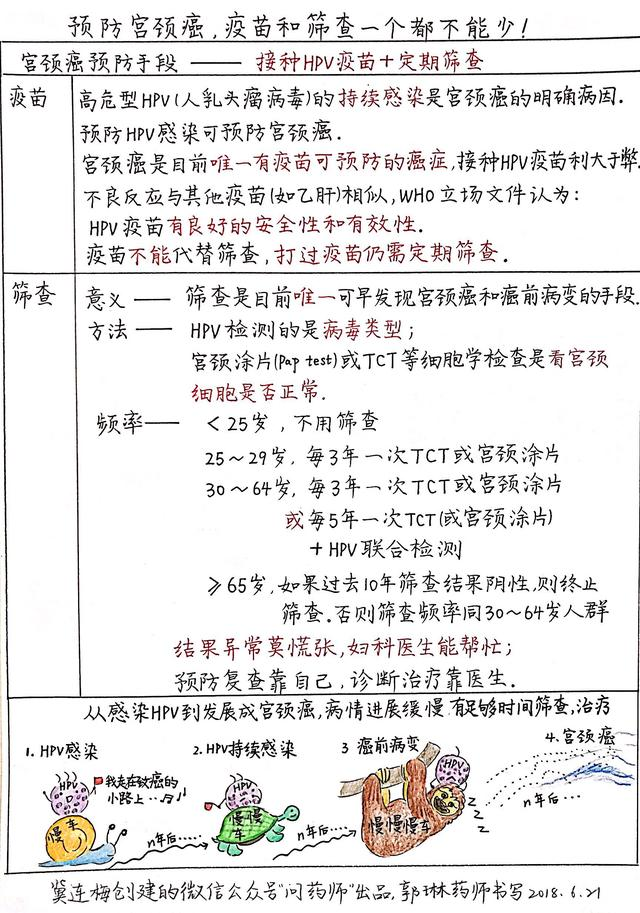 预防宫颈癌,疫苗和筛查一个都不能少!
宫颈癌预防手段 —— 接种HPV疫苗+定期筛查
疫苗
高危型HPV(人乳头瘤病毒)的持续感染是宫颈癌的明确病因.
预防HPV感染可预防宫颈癌.
宫颈癌是目前唯一有疫苗可预防的癌症,接种HPV疫苗利大于弊.
不良反应与其他疫苗(如乙肝)相似,WHO立场文件认为:
HPV疫苗有良好的安全性和有效性.
疫苗不能代替筛查,打过疫苗仍需定期筛查.
筛查
意义 —— 筛查是目前唯一可早发现宫颈癌和癌前病变的手段.
方法 —— HPV检测的是病毒类型;
宫颈涂片(Pap test)或TCT等细胞学检查是看宫颈
细胞是否正常.
频率—— <25岁,不用筛查
25~29岁,每3年一次TCT或宫颈涂片
30~64岁,每3年一次TCT或宫颈涂片
或每5年一次TCT(或宫颈涂片)
+HPV联合检测
≥65岁,如果过去10年筛查结果阴性,则终止
筛查.否则筛查频率同30~64岁人群
结果异常莫慌张,妇科医生能帮忙;
预防复查靠自己,诊断治疗靠医生.
从感染HPV到发展成宫颈癌,病情进展缓慢 有足够时间筛查,治疗
1. HPV感染
HPV
我走在致癌的
小路上...
慢车
n年后...
2. HPV持续感染
HPV
慢慢
车
n年后....
3 癌前病变
HPV
慢慢慢车
z
z
z
n年后...
4. 宫颈癌
冀连梅创建的微信公众号"问药师"出品,郭琳药师书写2018.6.21